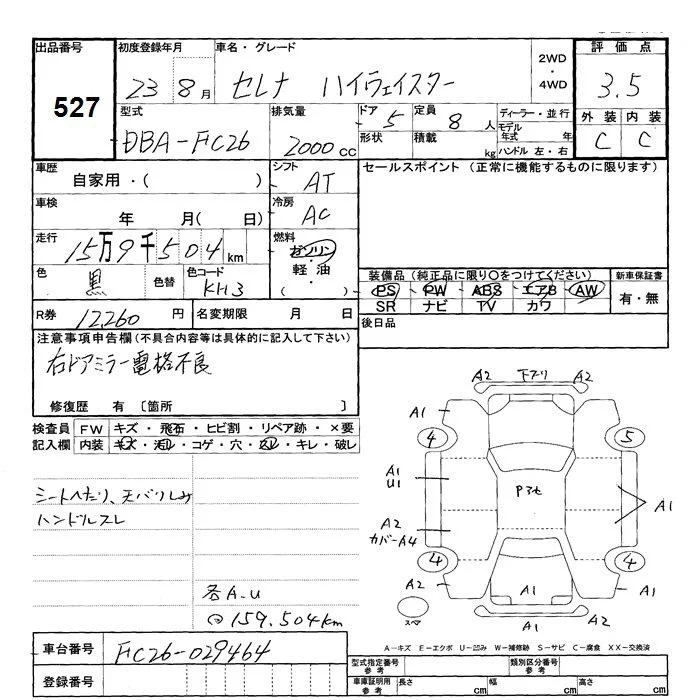 出品番号 初度登録年月 車名・グレード 2WD・4WD 評価点
527 23 8月 セレナ ハイウェイスター 3.5
型式 排気量 ドア 5 定員 8人 ディーラー・並行 外装 内装
DBA-FC26 2000cc 形状 積載 kg モデル年式 年 C C
ハンドル 左・右
車歴 シフト セールスポイント (正常に機能するものに限ります)
自家用・( ) AT
車検 冷房
年 月( 日) AC
走行 燃料
15万9千504km ガソリン・軽油
( )
色 色替 色コード 装備品(純正品に限り○をつけてください) 新車保証書
黒 KH3 PS PW ABS エアB AW 有・無
SR ナビ TV カワ
R券 12260円 名変期限 月 日 後日品
注意事項申告欄(不具合内容等は具体的に記入して下さい)
右ドアミラー電格不良
修復歴 有 [箇所 ]
検査員 FW キズ・飛石・ヒビ割・リペア跡・×要
記入欄 内装 キズ・汚れ・コゲ・穴・スレ・キレ・破レ
シートへたり、天バリしみ
ハンドルスレ
各A.U
159.504km
A2 下ブリ A2
A1 A1
4 5
A1
U1
P3セ
A2
カバーA4
A1
4 4
A2 A1 A2
スペ A1 A2
A-キズ E-エクボ U-凹み W-補修跡 S-サビ C-腐食 XX-交換済
車台番号 FC26-029464
登録番号
型式指定番号 参考 類別区分番号 参考
車庫証明用 参考 長さ cm 幅 cm 高さ cm